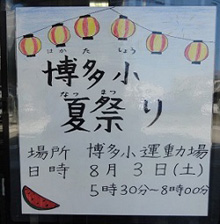 はかた しょう
博多小
なつ まつ
夏祭り
場所 博多小運動場
日時 8月3日(土)
5時30分~8時00分